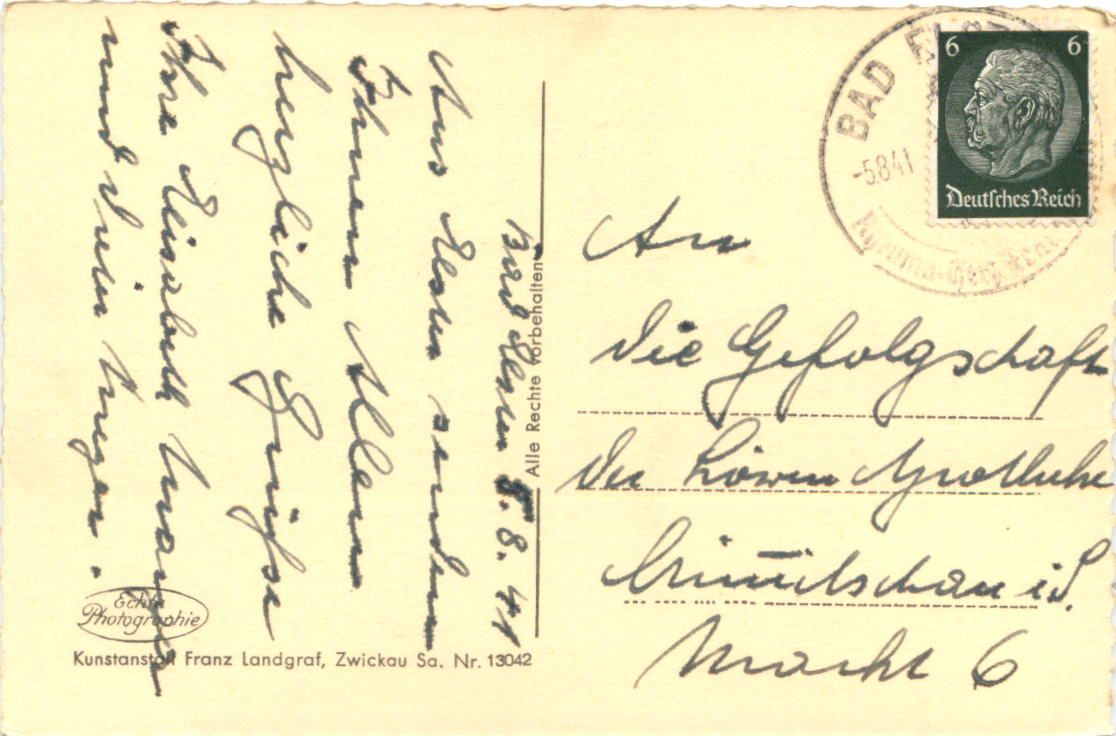 Bad Elster 5. 8. 41
Aus Elster senden
Ihnen Allen
herzliche Grüße
Ihre Elisabeth
und
An
die Gefolgschaft
der Löwen Apotheke
Crimmitschau i. S.
Markt 6
BAD
-5.8.41
6 6
Deutsches Reich
Alle Rechte vorbehalten
Echte
Photographie
Kunstanstalt Franz Landgraf, Zwickau Sa. Nr. 13042